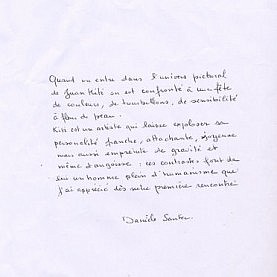 Quand on entre dans l'univers pictural
de Juan Kiti on est confronté à une fête
de couleurs, de tourbillons, de sensibilité
à fleur de peau.
Kiti est un artiste qui laisse exploser sa
personalité franche, attachante, joyeuse
mais aussi empreinte de gravité et
même d'angoisse : ces contrastes font de
lui un homme plein d'humanisme que
j'ai apprécié dès notre première rencontre